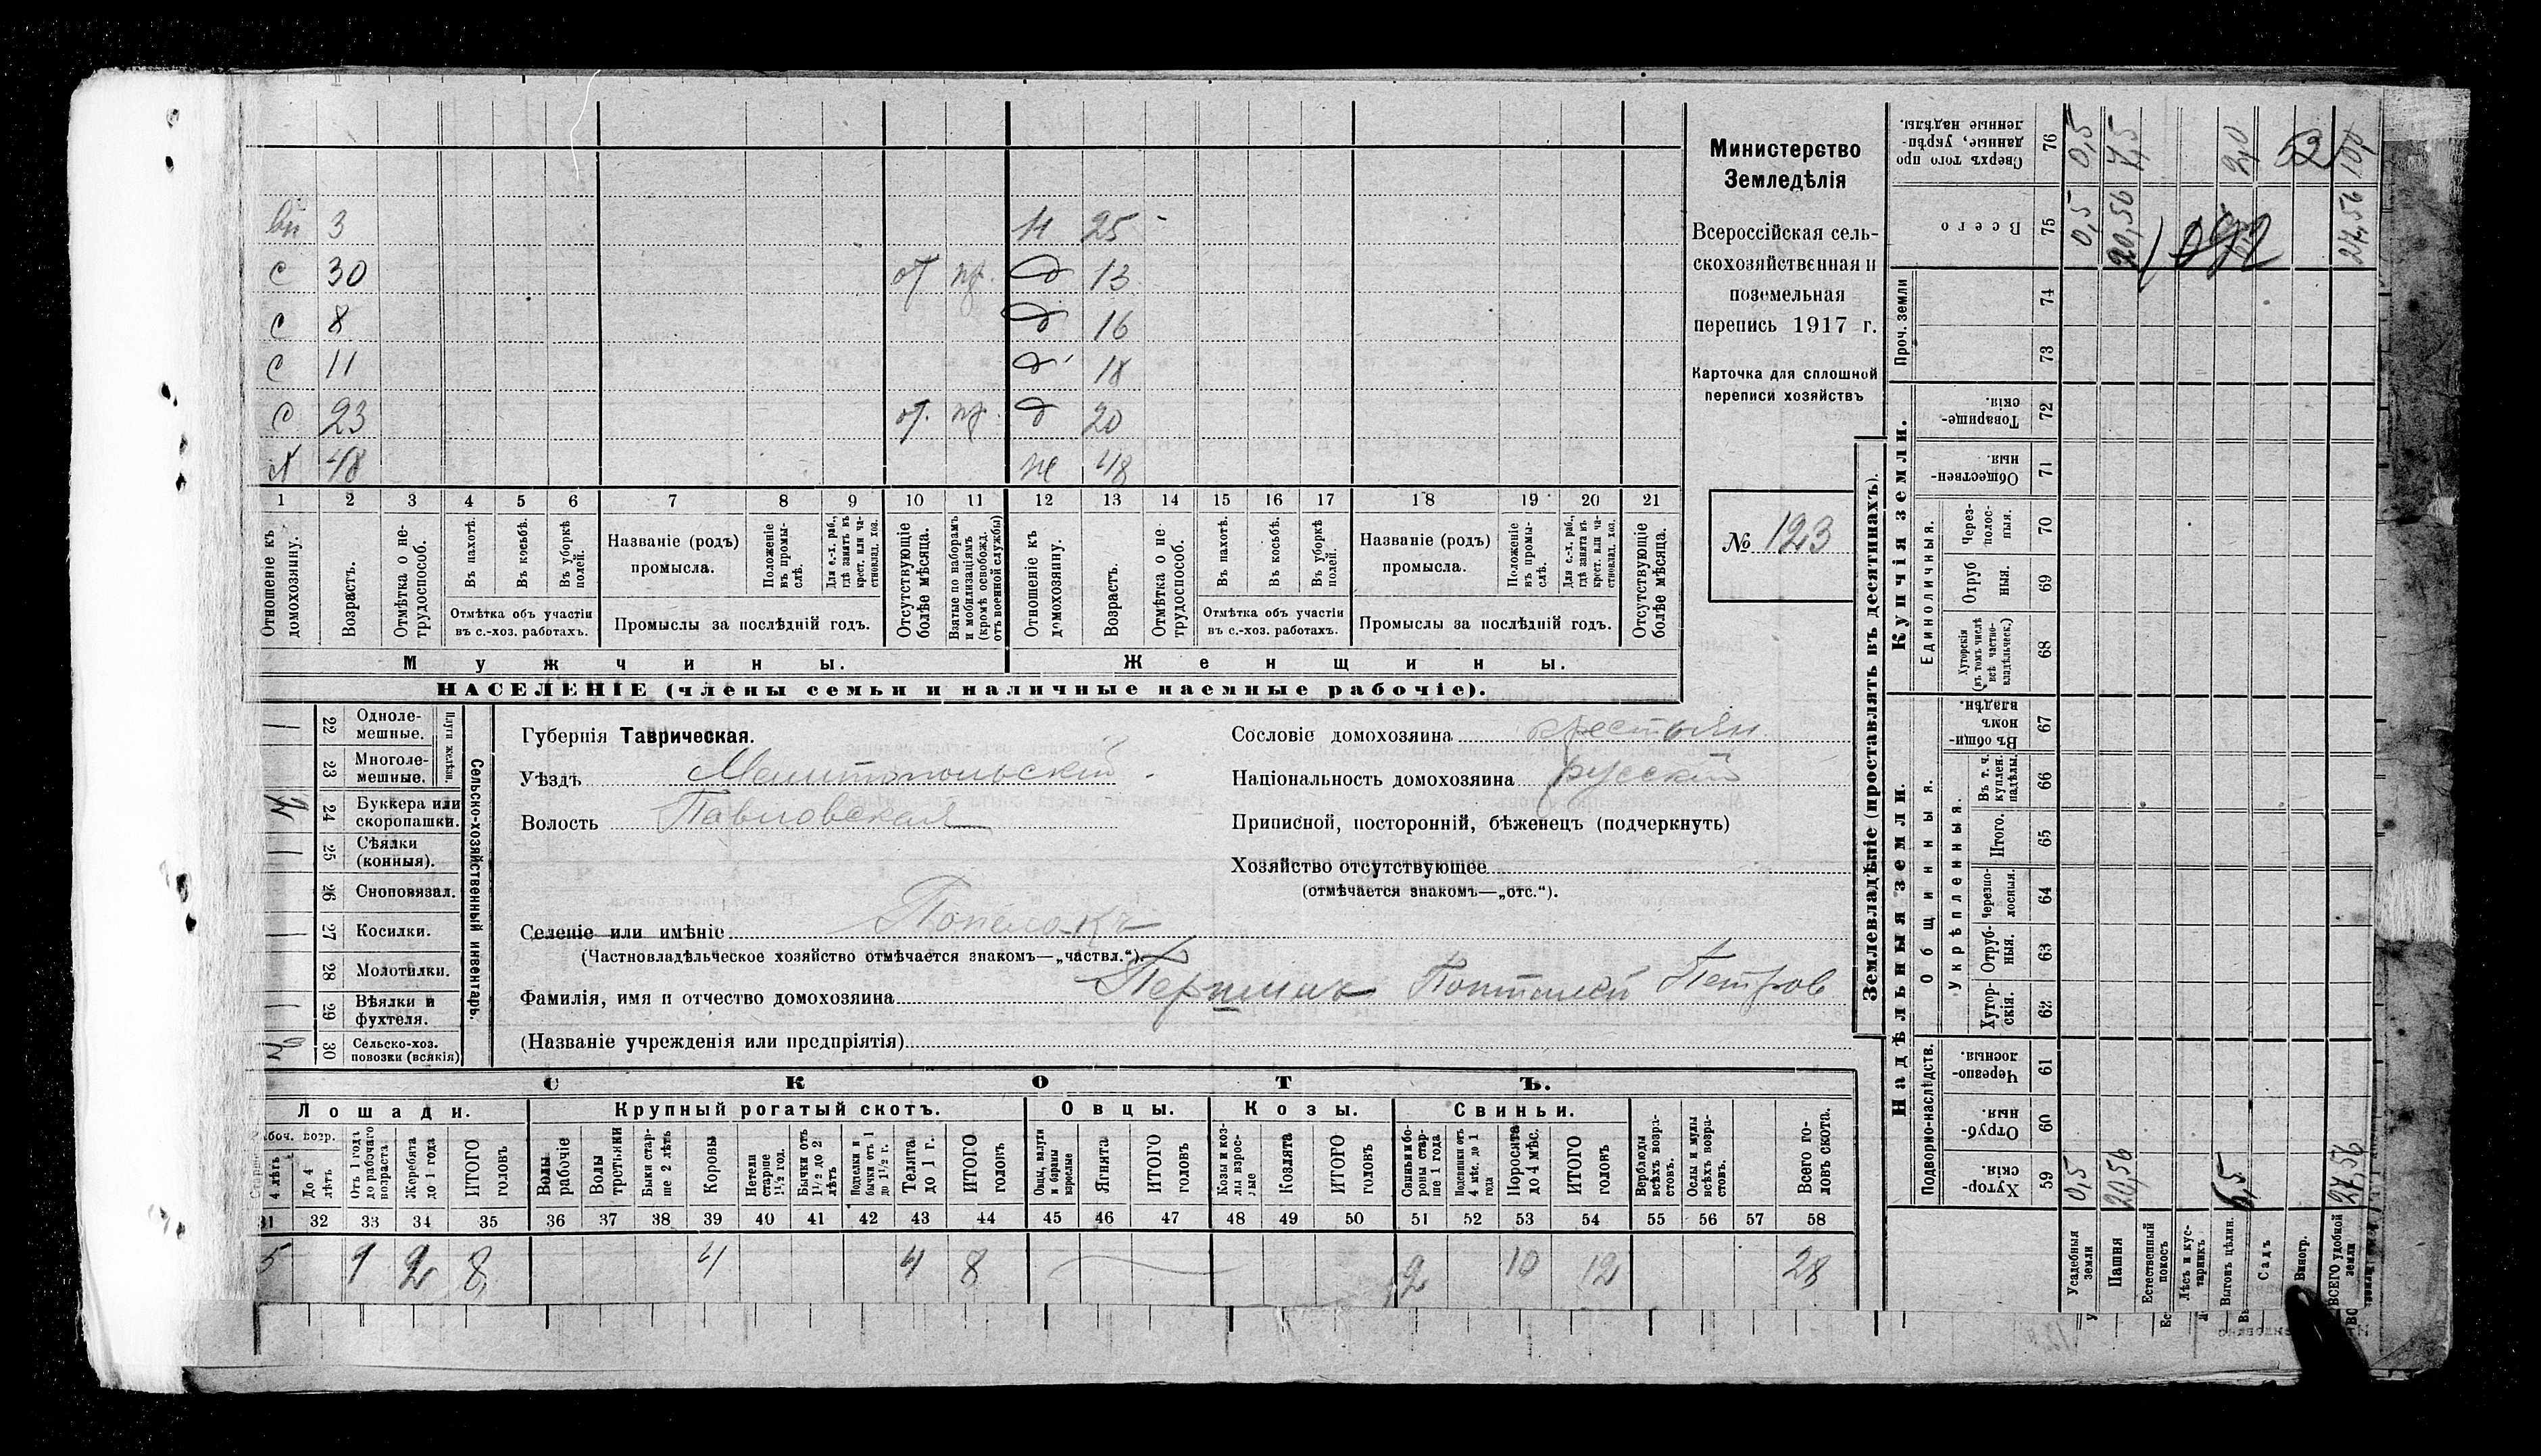 вн 3 н 25 -
с 30 от пр. д 13
с 8 д 16
с 11 д 18
с 23 от. пр. д 20
х 48 ж 48
1 2 3 4 5 6 7 8 9 10 11 12 13 14 15 16 17 18 19 20 21
Отношеніе къ домохозяину.
Возрастъ.
Отмѣтка о не-трудоспособ.
Въ пахотѣ.
Въ косьбѣ.
Въ уборкѣ полей.
Отмѣтка объ участіи
въ с.-хоз. работахъ.
Названіе (родъ)
промысла.
Положеніе въ промы-слѣ.
Для с.-х. раб., гдѣ занятъ въ крест. или ча-стновлад. хоз.
Промыслы за послѣдній годъ.
Отсутствующіе болѣе мѣсяца.
Взятые по наборамъ и мобилизаціямъ (кромѣ освобожд. отъ военной службы)
Отношеніе къ домохозяину.
Возрастъ.
Отмѣтка о не-трудоспособ.
Въ пахотѣ.
Въ косьбѣ.
Въ уборкѣ полей.
Отмѣтка объ участіи
въ с.-хоз. работахъ.
Названіе (родъ)
промысла.
Положеніе въ промы-слѣ.
Для с.-х. раб., гдѣ занята въ крест. или ча-стновлад. хоз.
Промыслы за послѣдній годъ.
Отсутствующіе болѣе мѣсяца.
Мужчины. Женщины.
НАСЕЛЕНІЕ (члены семьи и наличные наемные рабочіе).
Министерство
Земледѣлія
Всероссійская сель-
скохозяйственная и
поземельная
перепись 1917 г.
Карточка для сплошной
переписи хозяйствъ
№ 123
22 Одноле-мешные.
23 Многоле-мешные.
Плуги желѣзн.
24 Буккера или скоропашки.
25 Сѣялки (конныя).
26 Сноповязал.
27 Косилки.
28 Молотилки.
29 Вѣялки и фухтеля.
30 Сельско-хоз. повозки (всякія)
Сельско-хозяйственный инвентарь.
Губернія Таврическая.
Уѣздъ Мелитопольскій
Волость Павловская
Селеніе или имѣніе
(Частновладѣльческое хозяйство отмѣчается знакомъ—„частвл.“).
Фамилія, имя и отчество домохозяина Петров
(Названіе учрежденія или предпріятія)
Сословіе домохозяина крестьян
Національность домохозяина русскій
Приписной, посторонній, бѣженецъ (подчеркнуть)
Хозяйство отсутствующее
(отмѣчается знакомъ—„отс.“).
СКОТЪ.
Лошади. Крупный рогатый скотъ. Овцы. Козы. Свиньи.
4 лѣтъ
До 4 лѣтъ
Отъ 1 года до рабочаго возраста
Жеребята до 1 года
ИТОГО головъ
Волы рабочіе
Волы третьяки
Быки стар-ше 2 лѣтъ
Коровы
Нетели старше 1½ год.
Бычки отъ 1½ до 2 лѣтъ
Подтелки и бычки отъ 1 до 1½ г.
Телята до 1 г.
ИТОГО головъ
Овцы, валухи и бараны взрослые
Ягнята
ИТОГО головъ
Козы и коз-лы взрос-лые
Козлята
ИТОГО головъ
Свиньи и бо-ровы стар-ше 1 года
Подсвинки отъ 4 мѣс. до 1 года
Поросята до 4 мѣс.
ИТОГО головъ
Верблюды всѣхъ возра-стовъ.
Ослы и мулы всѣхъ возра-стовъ.
Всего го-ловъ скота.
31 32 33 34 35 36 37 38 39 40 41 42 43 44 45 46 47 48 49 50 51 52 53 54 55 56 57 58
5 1 2 8 4 4 8 2 10 12 28
Землевладѣніе (проставлять въ десятинахъ).
Надѣльныя земли. Купчія земли.
Подворно-наслѣдств.
Общинныя.
Укрѣпленныя.
Единоличныя.
Проч. земли
Сверхъ того про данные, укрѣп-ленные надѣлы. 76 0,5 4,5 2,0 52
Всего 75 0,5 20,56 27,56
74
73
Товарище-скія. 72
Обществен-ныя. 71
Через-полос-ныя. 70
Отруб ныя. 69
Хуторскія (въ томъ числѣ всѣ частно-владѣльческ.) 68
Въ общин номъ владѣн. 67
Въ т. ч. куплен. надѣлы. 66
Итого. 65
Черезпо-лосныя. 64
Отруб-ныя. 63
Хутор-скія. 62
Черезпо-лосныя. 61
Отруб-ныя. 60
Хутор-скія. 59 0,5 20,56 6,5 27,56
Усадебныя земли
Пашня
Естественный покосъ
Лѣсъ и кус-тарникъ
Выгонъ цѣлин.
Садъ
Виногр.
ВСЕГО удобной земли